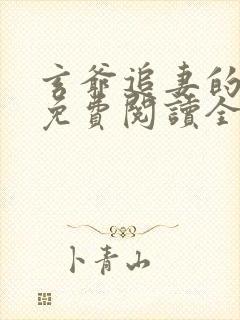 玄爺追妻的
免費閱讀全
卜青山